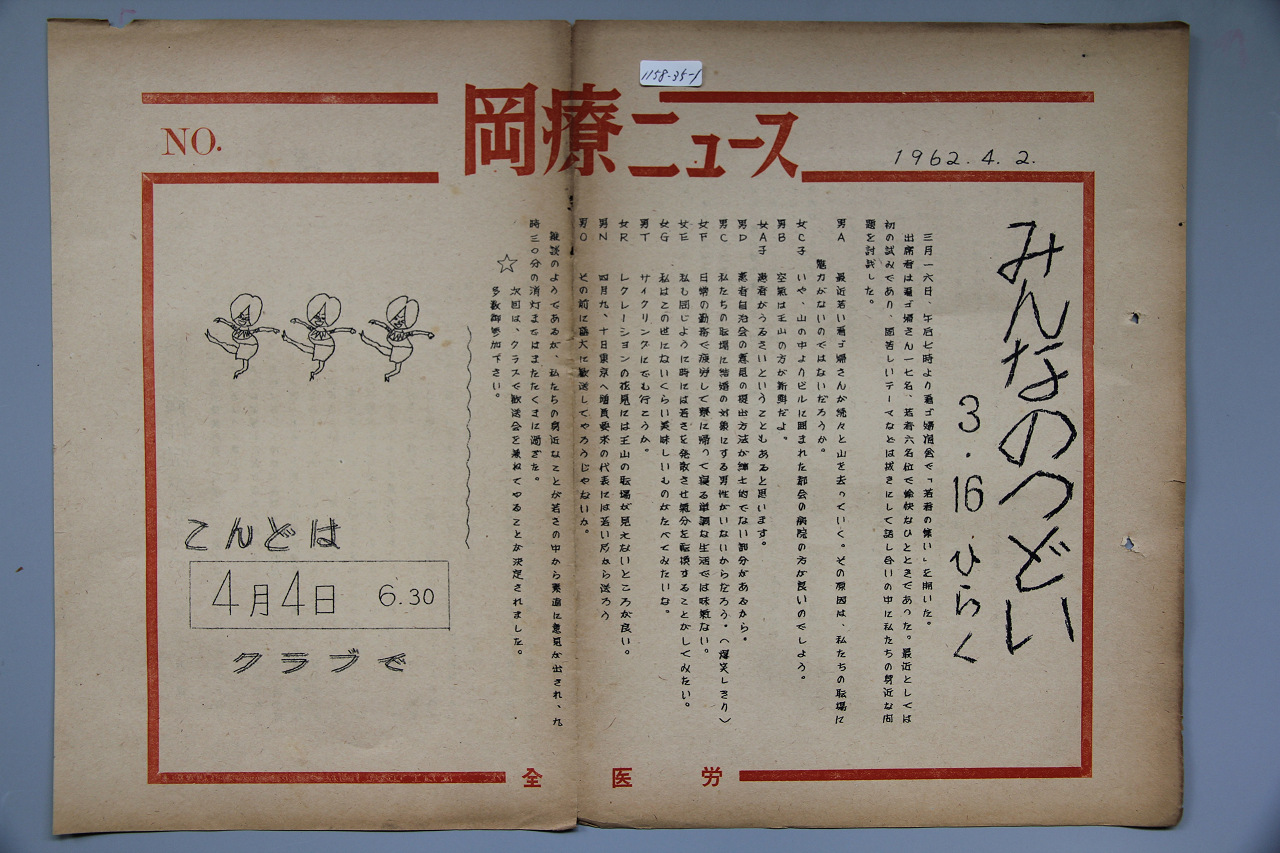 1158-35-1
NO.
岡療ニュース
1962.4.2.
みんなのつどい
3.16.ひらく
三月一六日、午后七時より看ゴ婦宿舎で「若者の集い」を開いた。
出席者は看ゴ婦さん一七名、若者六名位で愉快なひとときであった。最近としては
初の試みであり、固苦しいテーマなどは抜きにして話し合いの中に私たちの身近な問
題を討議した。
男A 最近若い看ゴ婦さんが続々と山を去っていく。その原因は、私たちの転場に
魅力がないのではないだろうか。
女C子 いや、山の中よりビルに囲まれた都会の病院の方が良いのでしよう。
男B 空気は王山の方が新鮮だよ。
女A子 患者がうるさいということもあると思います。
男D 患者自治会の意見の提出方法が紳士的でない部分があるから。
男C 私たちの転場に結婚の対象にする男性がいないからだろう。(爆笑しきり)
女F 日常の勤務で疲労して寮に帰って寝る単調な生活では味気ない。
女E 私も同じように時には若さを発散させ気分を転換することがしてみたい。
女G 私はこの世にないくらい美味しいものがたべてみたいな。
男T サイクリングにでも行こうか。
女R レクレーションの花見には王山の転場が見えないところが良い。
男N 四月九、十日東京へ増員要求の代表には若い力から送ろう
男O その前に盛大に歓送してやろうじゃないか。
雑談のようであるが、私たちの身近なことが若さの中から素直に意見が出され、九
時三〇分の消灯まではまたたくまに過ぎた。
☆ 次回は、クラブで歓送会を兼ねてやることが決定されました。
多数御参加下さい。
こんどは
4月4日 6.30
クラブで
全医労